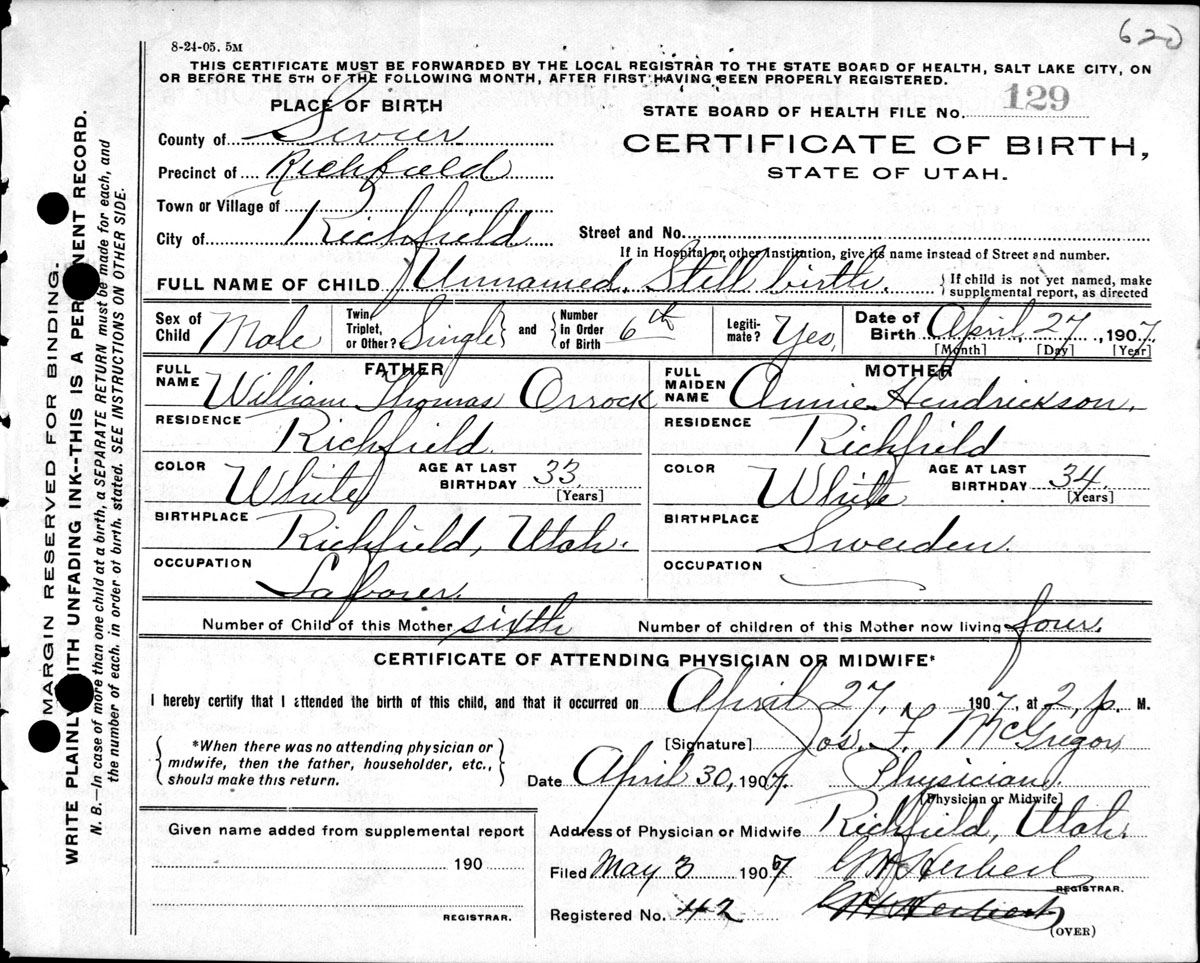 620
8-24-05. 5M
THIS CERTIFICATE MUST BE FORWARDED BY THE LOCAL REGISTRAR TO THE STATE BOARD OF HEALTH, SALT LAKE CITY, ON
OR BEFORE THE 5TH OF THE FOLLOWING MONTH, AFTER FIRST HAVING BEEN PROPERLY REGISTERED.
PLACE OF BIRTH
STATE BOARD OF HEALTH FILE No. 129
County of Sevier
CERTIFICATE OF BIRTH,
Precinct of Richfield
STATE OF UTAH.
Town or Village of
City of Richfield
Street and No.
If in Hospital or other Institution, give its name instead of Street and number.
FULL NAME OF CHILD Unnamed. Still birth. { If child is not yet named, make
supplemental report, as directed
Sex of Child Male Twin, Triplet, or Other? Single } and { Number in Order of Birth 6th Legiti-mate? Yes, Date of Birth April 27, 1907.
[Month] [Day] [Year]
FATHER
MOTHER
FULL NAME William Thomas Orrock
FULL MAIDEN NAME Annie Hendrickson.
RESIDENCE Richfield.
RESIDENCE Richfield
COLOR White AGE AT LAST BIRTHDAY 33. [Years]
COLOR White AGE AT LAST BIRTHDAY 34. [Years]
BIRTHPLACE Richfield, Utah.
BIRTHPLACE Sweeden.
OCCUPATION Laborer.
OCCUPATION
Number of Child of this Mother sixth Number of children of this Mother now living four.
CERTIFICATE OF ATTENDING PHYSICIAN OR MIDWIFE*
I hereby certify that I attended the birth of this child, and that it occurred on April 27, 1907, at 2, p. M.
{ *When there was no attending physician or
midwife, then the father, householder, etc.,
should make this return. }
[Signature] Jos. F. McGregor
Date April 30, 1907. Physician.
[Physician or Midwife]
Address of Physician or Midwife Richfield, Utah.
Given name added from supplemental report
190
REGISTRAR.
Filed May 3 1907 GM Herbert
REGISTRAR.
Registered No. 42
(OVER)
MARGIN RESERVED FOR BINDING.
WRITE PLAINLY WITH UNFADING INK--THIS IS A PERMANENT RECORD.
N. B.—In case of more than one child at a birth, a SEPARATE RETURN must be made for each, and
the number of each, in order of birth, stated. SEE INSTRUCTIONS ON OTHER SIDE.